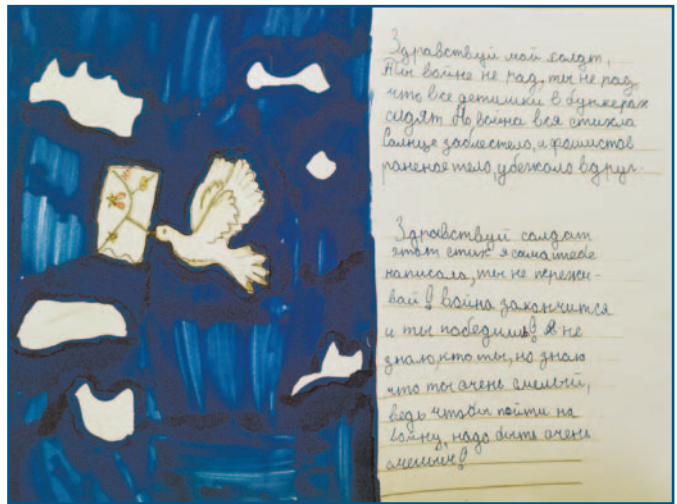 Здравствуй мой солдт,
Ты войне не рад, ты не рад,
что все детишки в бункерах
сидят. Но война вся стихла
Солнце заблестело, и фашистов
раненое тело, убежало вдруг.
Здравствуй солдат
этот стих я сама тебе
написала, ты не пережи-
вай! война закончится
и ты победишь! Я не
знаю, кто ты, но знаю
что ты очень смелый,
ведь чтобы пойти на
войну, надо быть очень
смелым!